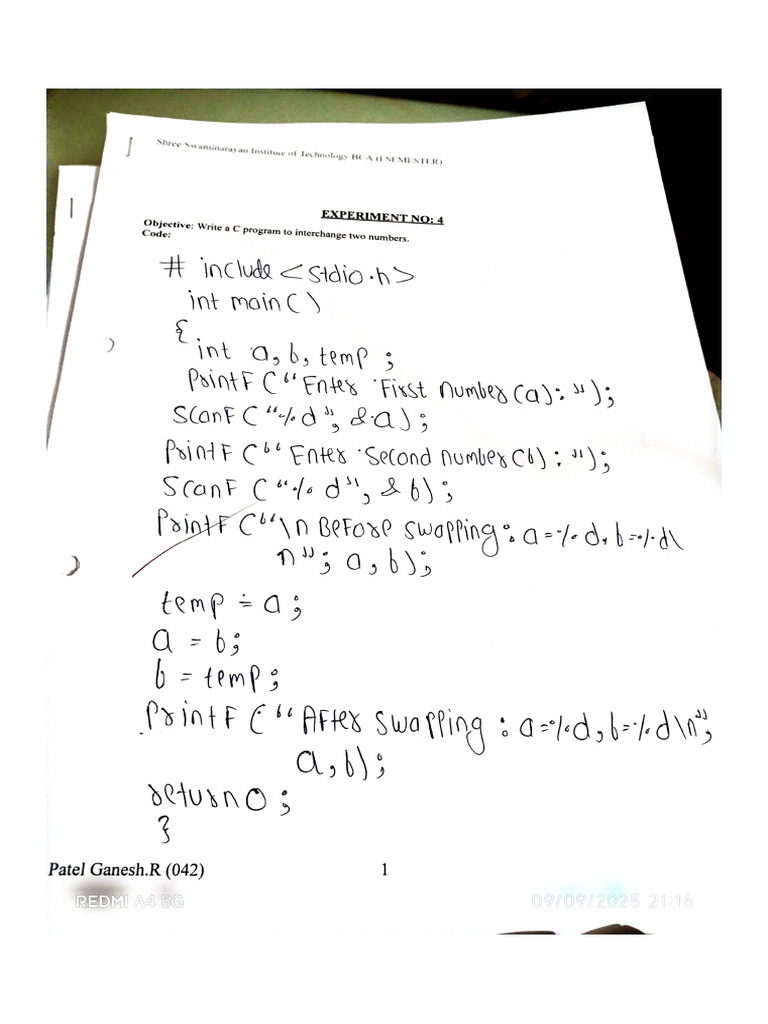 Shree Swaminarayan Institute of Technology BCA (I SEMESTER)
EXPERIMENT NO: 4
Objective: Write a C program to interchange two numbers.
Code:
# include <stdio.h>
int main ( )
{
int a, b, temp ;
PrintF (“Enter First Number (a): ”);
ScanF (“%d”, &a);
PrintF (“Enter Second number (b) : ”);
ScanF (“% d”, & b);
PrintF (“\n BeFore swapping: a=%d, b=%d\
n”; a, b);
temp = a;
a = b;
b = temp;
PrintF (“AFter swapping : a=%d, b=%d\n”,
a, b);
return 0 ;
}
Patel Ganesh.R (042) 1
REDMI A4 5G 09/09/2025 21:16